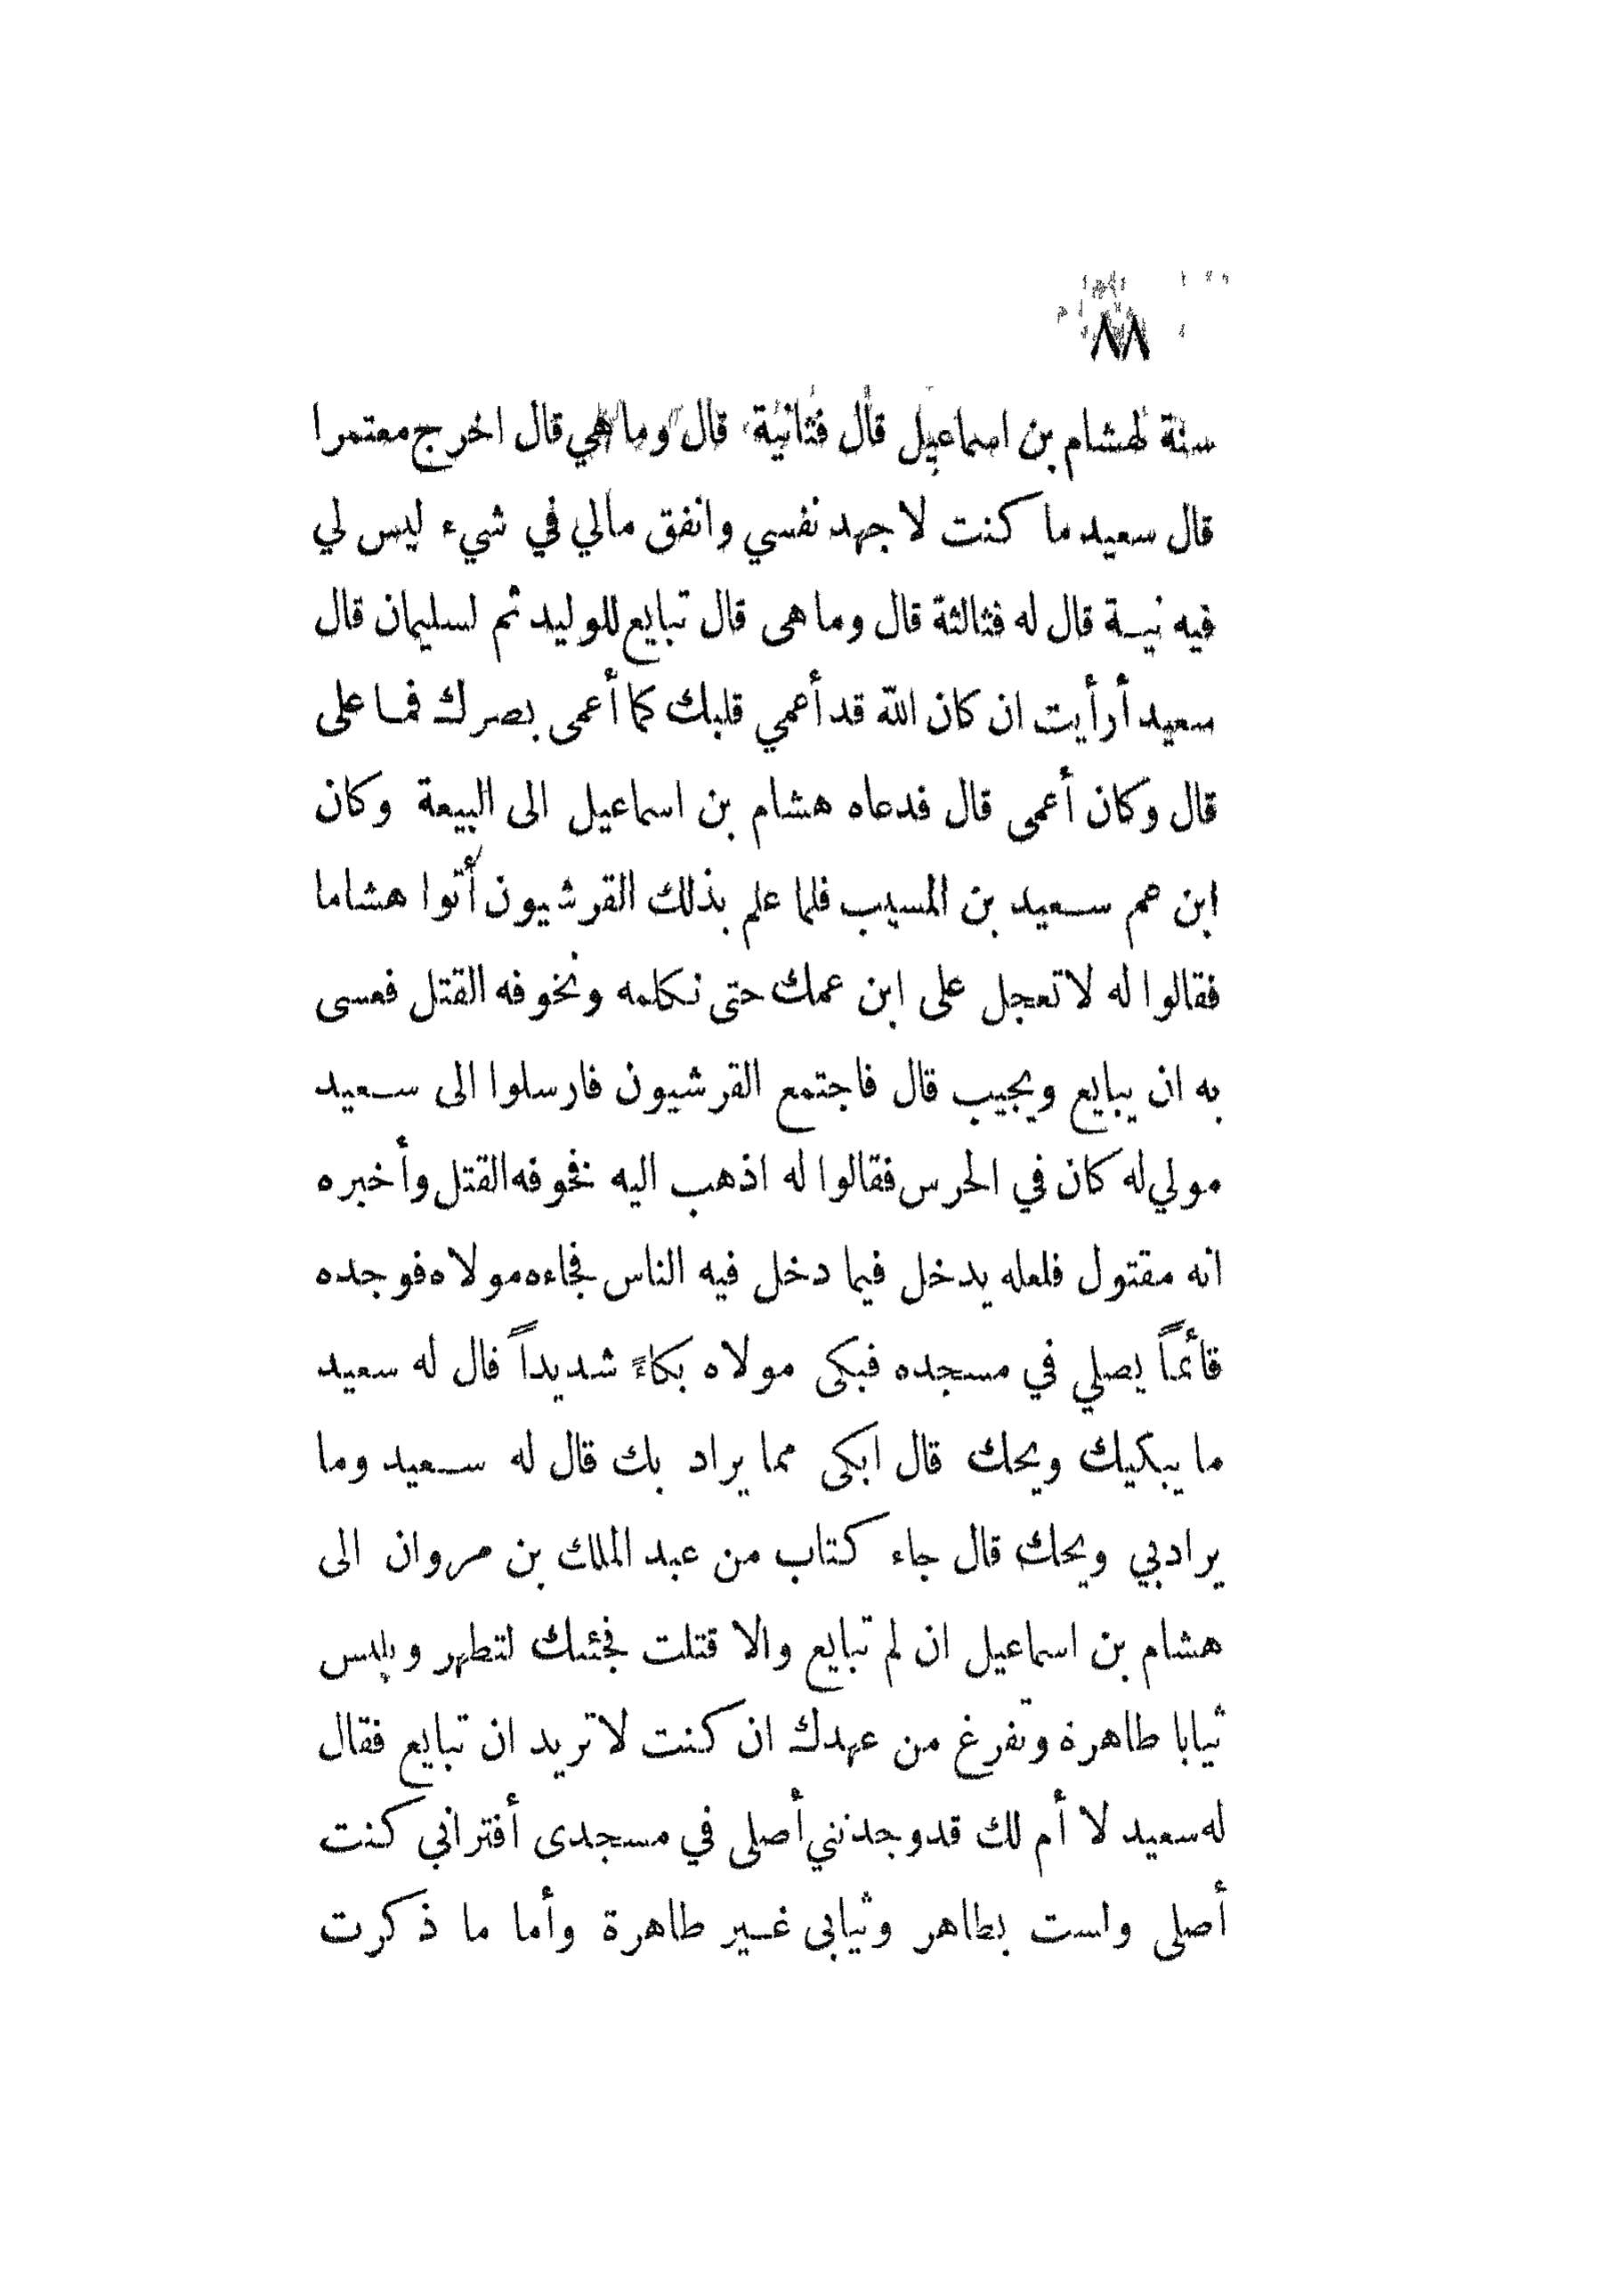 ٨٨
سنة لهشام بن اسماعيل قال فثانية قال وما هي قال اخرج معتمرا
قال سعيد ما كنت لاجهد نفسي وانفق مالي في شيء ليس لي
فيه نية قال له فثالثة قال وما هى قال تبايع للوليد ثم لسليمان قال
سعيد أرأيت ان كان الله قد أعمي قلبك كما أعمى بصرك فما على
قال وكان أعمى قال فدعاه هشام بن اسماعيل الى البيعة وكان
ابن عم سعيد بن المسيب فلما علم بذلك القرشيون أتوا هشاما
فقالوا له لا تعجل على ابن عمك حتى نكلمه ونخوفه القتل فعسى
به ان يبايع ويجيب قال فاجتمع القرشيون فارسلوا الى سعيد
مولي له كان في الحرس فقالوا له اذهب اليه فخوفه القتل وأخبره
انه مقتول فلعله يدخل فيما دخل فيه الناس فجاءه مولاه فوجده
قائماً يصلي في مسجده فبكى مولاه بكاءً شديداً قال له سعيد
ما يبكيك ويحك قال ابكى مما يراد بك قال له سعيد وما
يراد بي ويحك قال جاء كتاب من عبد الملك بن مروان الى
هشام بن اسماعيل ان لم تبايع والا قتلت فجئتك لتطهر وتلبس
ثيابا طاهرة وتفرغ من عهدك ان كنت لا تريد ان تبايع فقال
له سعيد لا أم لك قد وجدتني أصلى في مسجدى أفتراني كنت
أصلى ولست بطاهر وثيابى غير طاهرة وأما ما ذكرت